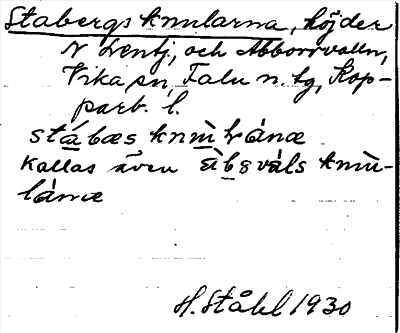 Stabergs knularna, höjder
N Lentj. och Abborrvalln,
Vika sn, Falu n. tg, Kop-
parb. l.
stábæs knùlránæ
Kallas även àbsváls knù-
lánæ
H. Ståhl 1930